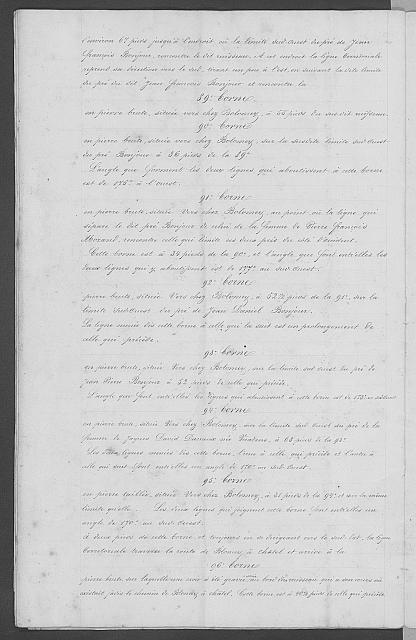 environ 67 pieds jusqu'à l'endroit où la limite sud-ouest du pré de Jean
François Bonjour, rencontre le dit ruisseau. A cet endroit la ligne territoriale
reprend sa direction vers le sud, tirant un peu à l'est, en suivant la dite limite
du pré du dit Jean François Bonjour et rencontre la
89e borne
en pierre brute, située vers chez Bolomey, à 55 pieds du susdit ruisseau.
90e borne
en pierre brute, située vers chez Bolomey, sur la susdite limite sud-ouest
du pré Bonjour à 36 pieds de la 89e
L'angle que forment les deux lignes qui aboutissent à cette borne
est de 175° à l'ouest.
91e borne
en pierre brute, située Vers chez Bolomey, au point où la ligne qui
sépare le dit pré Bonjour de celui de la femme de Pierre François
rencontre celle qui limite ces deux prés du côté
Cette borne est à 34 pieds de la 90e, et l'angle que font entr'elles les
deux lignes qui y aboutissent est de 177° au sud-ouest.
92e borne
pierre brute, située Vers chez Bolomey, à 52 pieds de la 91e, sur la
limite sud-ouest du pré de Jean Daniel Bonjour.
La ligne menée de cette borne à celle qui la suit est un prolongement de
celle qui précède.
93e borne
en pierre brute, située Vers chez Bolomey, sur la limite sud-ouest du pré de
Jean Pierre Bonjour à 52 pieds de celle qui précède.
L'angle que font entr'elles les lignes qui aboutissent à cette borne est de
94e borne
en pierre brute, située Vers chez Bolomey, sur la limite sud-ouest du pré de la
femme de Jaques David née à 63 pieds de la 93e
Les deux lignes menées dès cette borne, l'une à celle qui précède et l'autre à
celle qui suit font entr'elles un angle de 176° au sud-ouest.
95e borne
en pierre taillée, située Vers chez Bolomey, à 31 pieds de la 94e et sur la même
limite qu'elle. Les deux lignes qui joignent cette borne font entr'elles un
angle de 170° au sud-ouest.
à deux pieds de cette borne, et toujours en se dirigeant vers le sud-est, la ligne
territoriale traverse la route de Blonay à châtel et arrive à la
96e borne
pierre brute sur laquelle une croix a été gravée au bord d'un ruisseau qui a son cours où
existait jadis le chemin de Blonay à châtel. Cette borne est à pieds de celle qui précède.